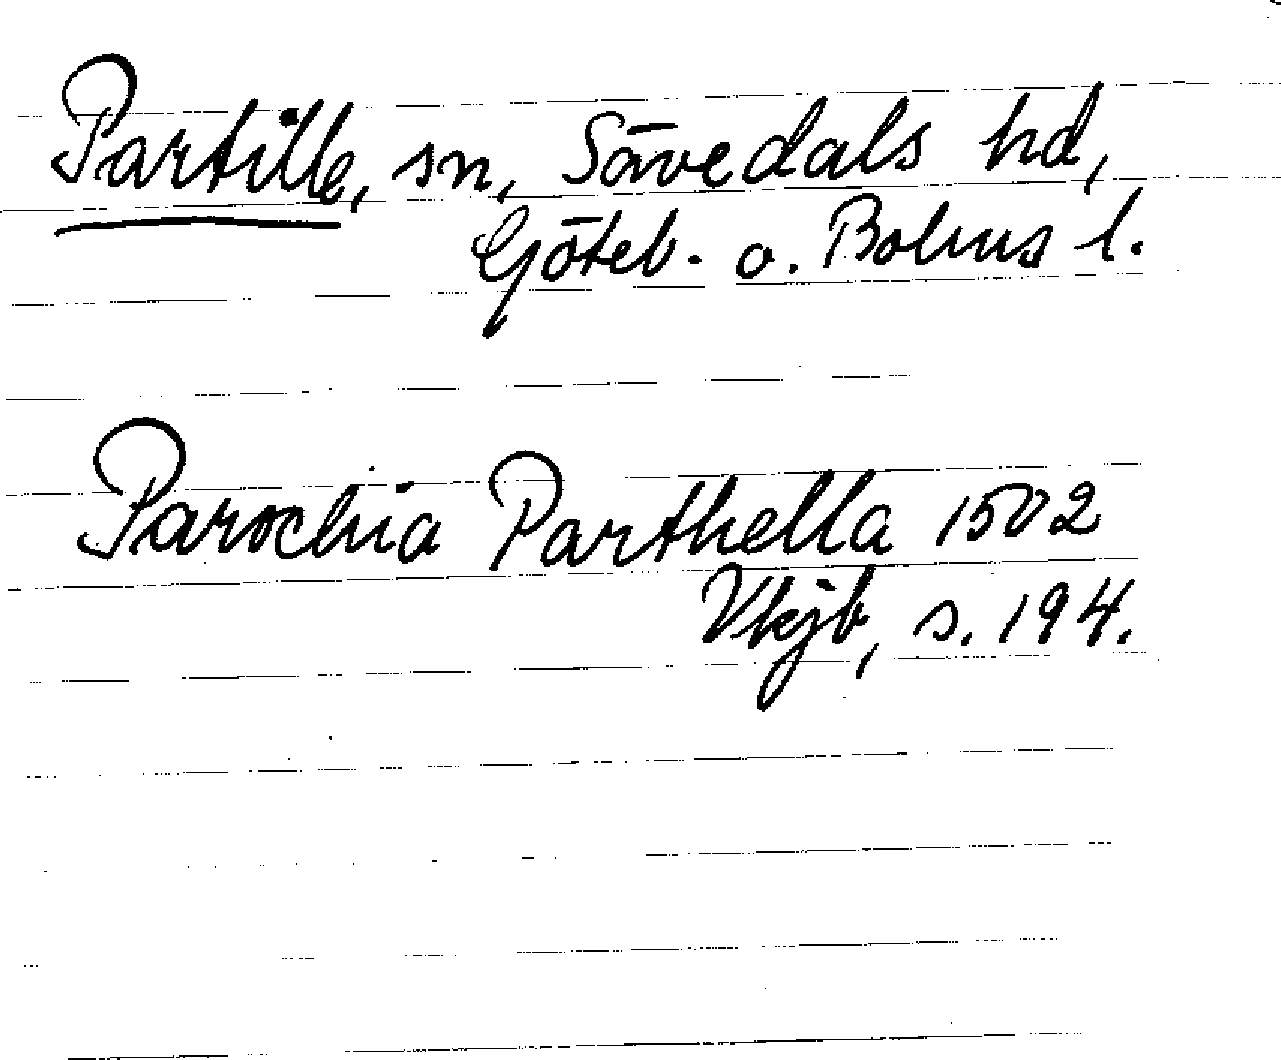 Partille, sn, Sävedals hd,
Göteb. o. Bohus l.
Parochia Parthella 1502
Vkjb, s. 194.